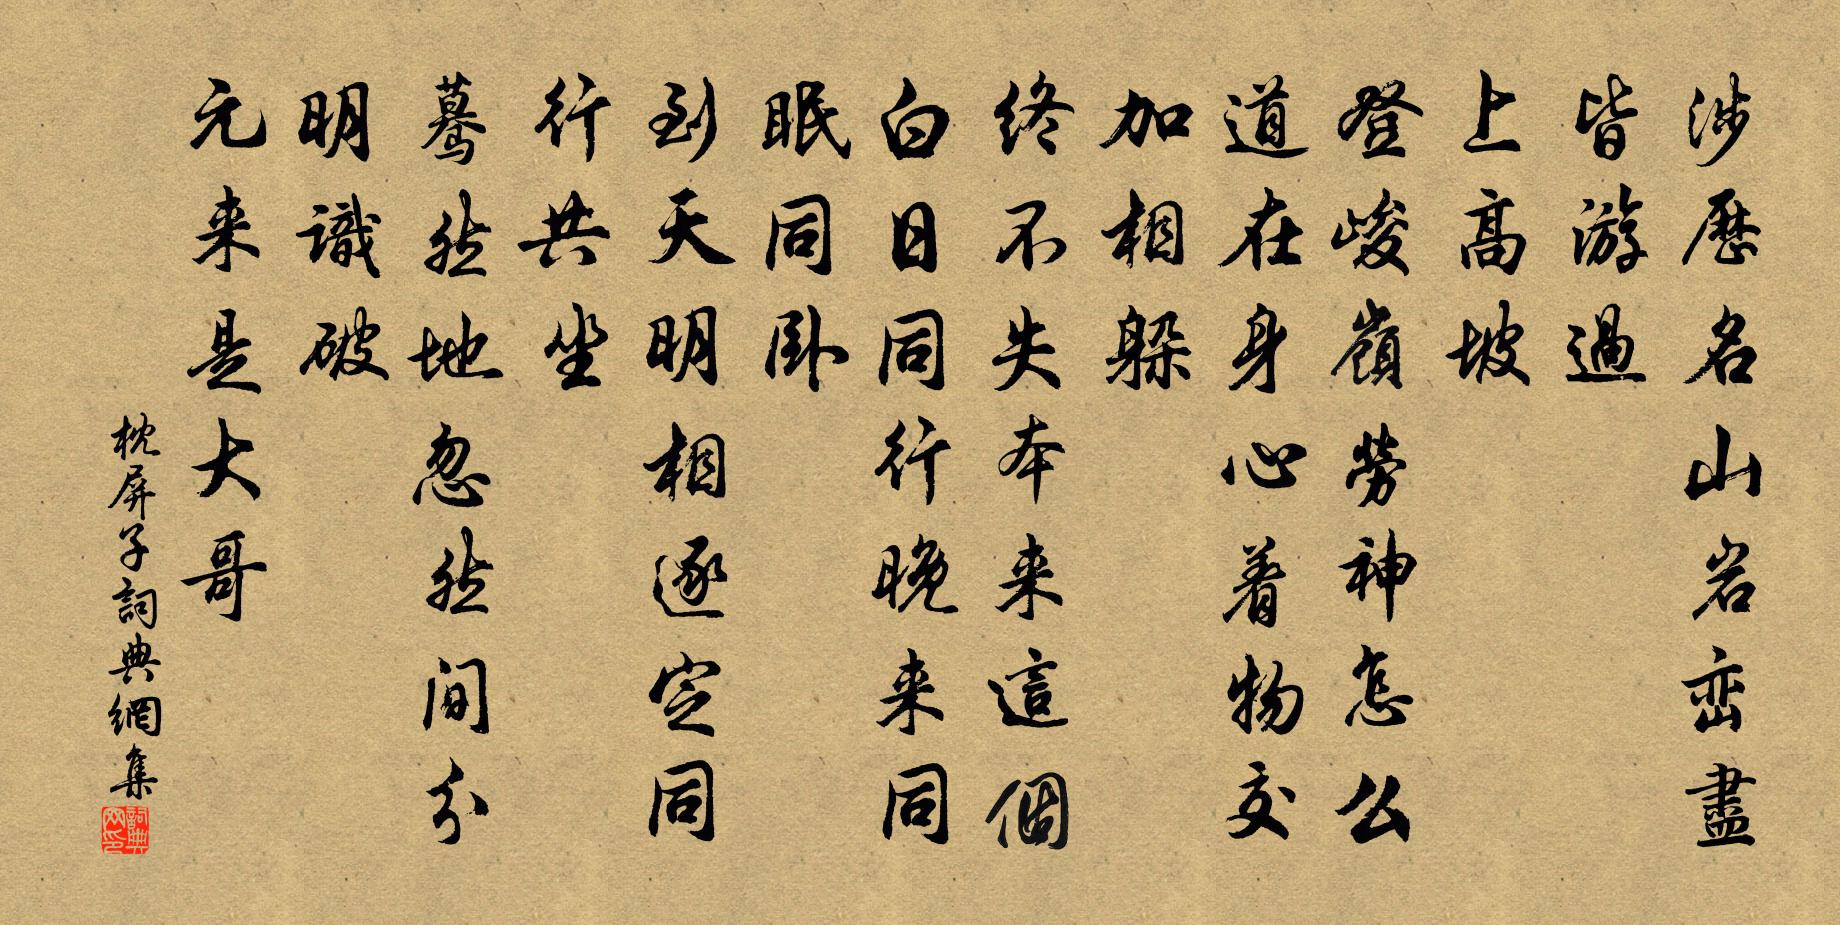 涉歷名山岩巒盡
皆游過
上高坡
登峻嶺勞神怎么
道在身心着物交
加相躲
終不失本来這個
白日同行晚来同
眠同卧
到天明相逐定同
行共坐
驀然地忽然间分
明識破
元来是大哥
枕屏子詞典網集
詞典
网印